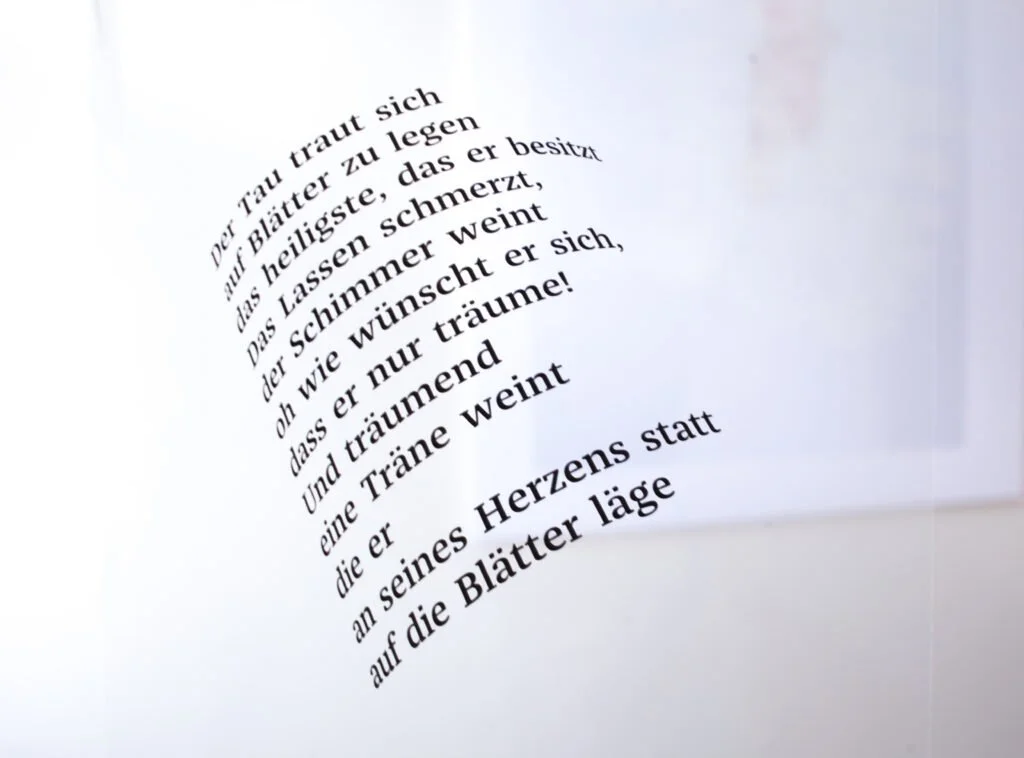 Der Tau traut sich
auf Blätter zu legen
das heiligste, das er besitzt
Das Lassen schmerzt,
der Schimmer weint
oh wie wünscht er sich,
dass er nur träume!
Und träumend
eine Träne weint
die er
an seines Herzens statt
auf die Blätter läge